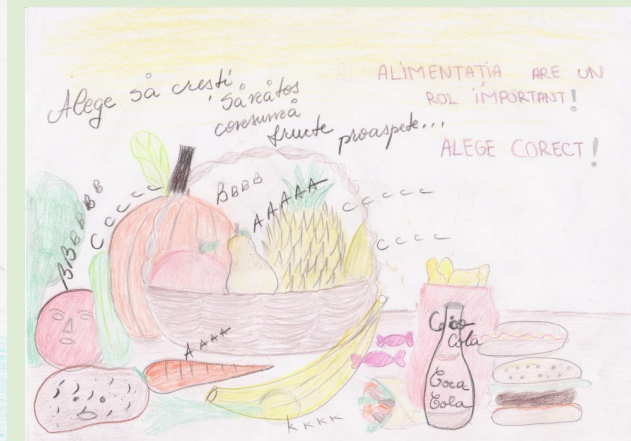 Alege să crești
sănătos
consumă
fructe proaspete...
ALIMENTAȚIA ARE UN
ROL IMPORTANT!
ALEGE CORECT!
BBBBBB
CCCCC
BBBB
AAAAA
CCCCC
CCCC
AAAA
KKKK
Cola
Coca
Cola